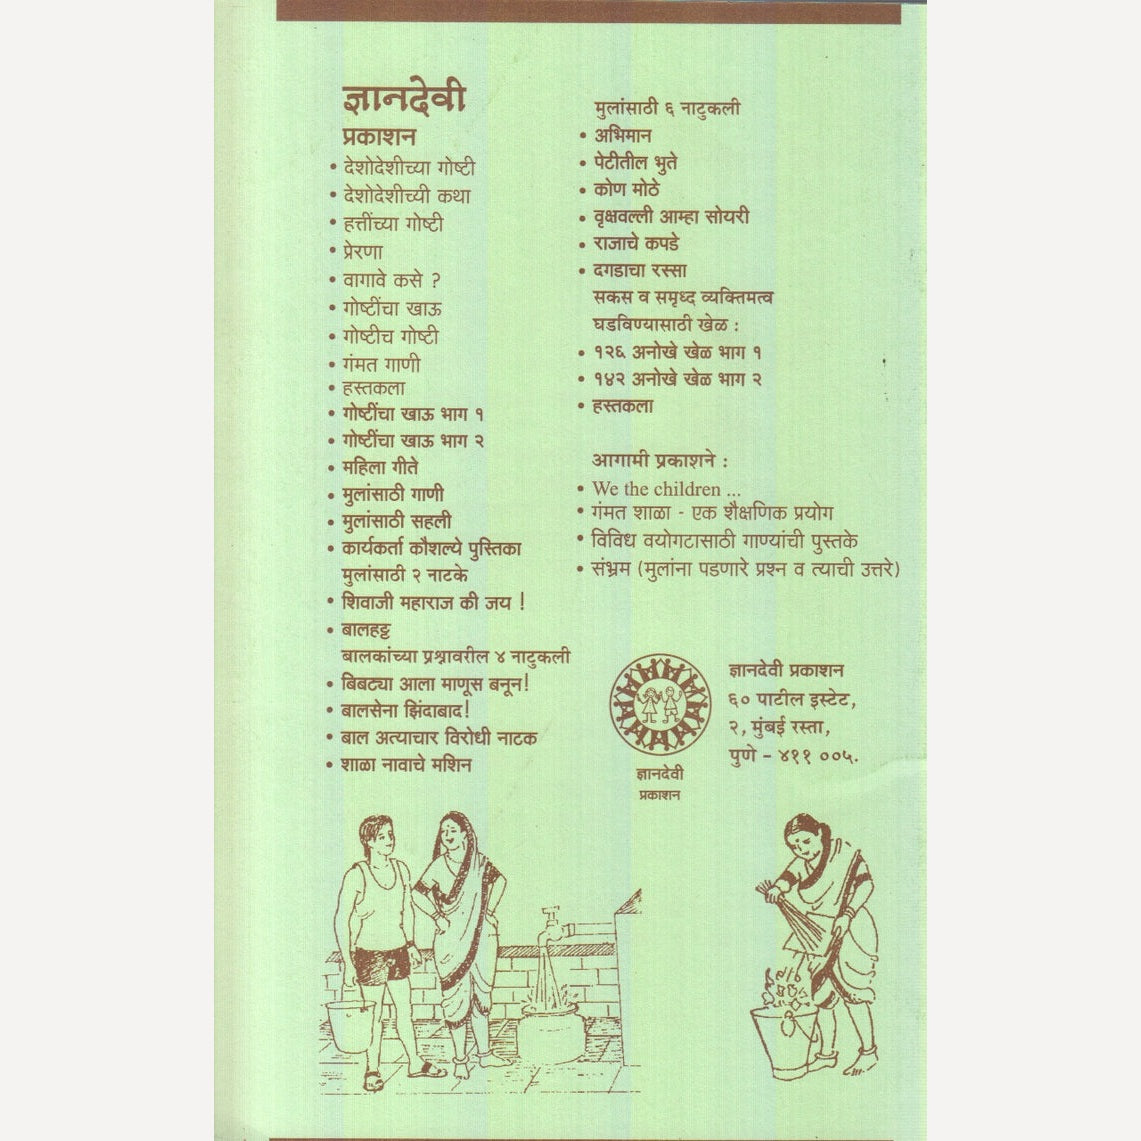 ज्ञानदेवी
प्रकाशन
• देशोदेशीच्या गोष्टी
• देशोदेशीच्यी कथा
• हत्तींच्या गोष्टी
• प्रेरणा
• वागावे कसे ?
• गोष्टींचा खाऊ
• गोष्टीच गोष्टी
• गंमत गाणी
• हस्तकला
• गोष्टींचा खाऊ भाग १
• गोष्टींचा खाऊ भाग २
• महिला गीते
• मुलांसाठी गाणी
• मुलांसाठी सहली
• कार्यकर्ता कौशल्ये पुस्तिका
मुलांसाठी २ नाटके
• शिवाजी महाराज की जय !
• बालहट्ट
बालकांच्या प्रश्नावरील ४ नाटुकली
• बिबट्या आला माणूस बनून!
• बालसेना झिंदाबाद!
• बाल अत्याचार विरोधी नाटक
• शाळा नावाचे मशिन
मुलांसाठी ६ नाटुकली
• अभिमान
• पेटीतील भुते
• कोण मोठे
• वृक्षवल्ली आम्हा सोयरी
• राजाचे कपडे
• दगडाचा रस्सा
सकस व समृध्द व्यक्तिमत्व
घडविण्यासाठी खेळ :
• १२६ अनोखे खेळ भाग १
• १४२ अनोखे खेळ भाग २
• हस्तकला
आगामी प्रकाशने :
• We the children ...
• गंमत शाळा - एक शैक्षणिक प्रयोग
• विविध वयोगटासाठी गाण्यांची पुस्तके
• संभ्रम (मुलांना पडणारे प्रश्न व त्याची उत्तरे)
ज्ञानदेवी
प्रकाशन
ज्ञानदेवी प्रकाशन
६० पाटील इस्टेट,
२, मुंबई रस्ता,
पुणे – ४११ ००५.